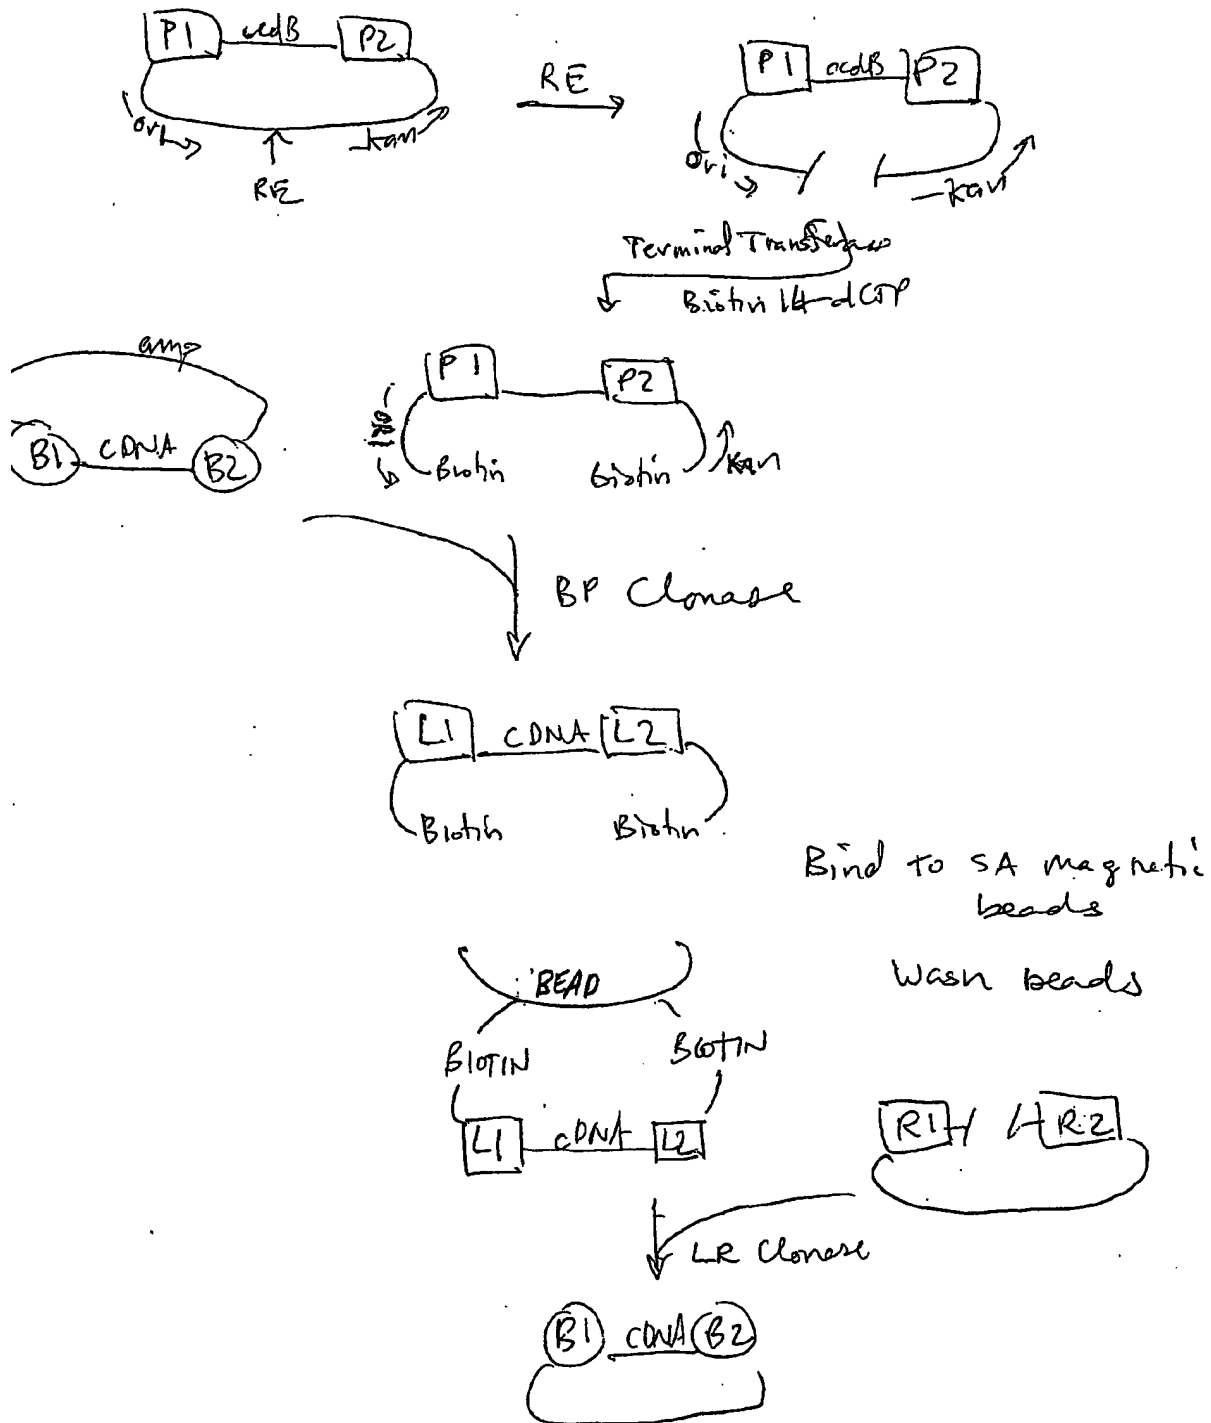 P1 ccdB P2
ori
kan
RE
RE
P1 ccdB P2
Ori
kan
Terminal Transferase
Biotin 14-dCTP
amp
B1 CDNA B2
P1 P2
ORI
Biotin Biotin
KAN
BP Clonase
L1 CDNA L2
Biotin Biotin
Bind to SA magnetic
beads
Wash beads
BEAD
BIOTIN BIOTIN
L1 cDNA L2
R1 R2
LR Clonase
B1 CDNA B2